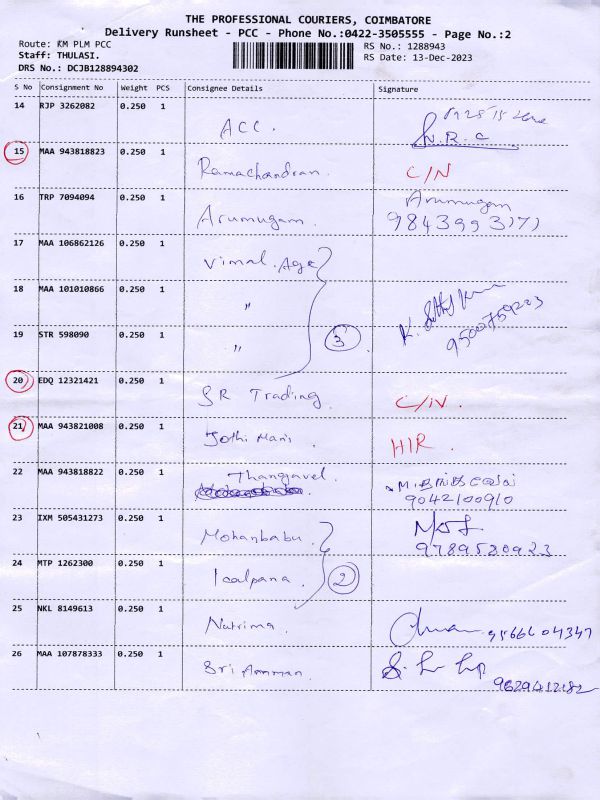 THE PROFESSIONAL COURIERS, COIMBATORE
Delivery Runsheet - PCC - Phone No.:0422-3505555 - Page No.:2
Route: KM PLM PCC
RS No.: 1288943
Staff: THULASI.
RS Date: 13-Dec-2023
DRS No.: DCJB128894302
S No Consignment No Weight PCS Consignee Details Signature
14 RJP 3262082 0.250 1 ACC.
15 MAA 943818823 0.250 1 Ramachandran. C/N
16 TRP 7094094 0.250 1 Arumugam. Arumugam
17 MAA 106862126 0.250 1 Vimal. Age
18 MAA 101010866 0.250 1 "
19 STR 598090 0.250 1 " 3
20 EDQ 12321421 0.250 1 SR Trading. C/N.
21 MAA 943821008 0.250 1 Jothi Mani. HIR.
22 MAA 943818822 0.250 1 Thangavel.
9042100910
23 IXM 505431273 0.250 1 Mohanbabu.
9789580923
24 MTP 1262300 0.250 1 Kalpana. 2
25 NKL 8149613 0.250 1 Natrima. 9566604347
26 MAA 107878333 0.250 1 Sri Amman.
9629412182